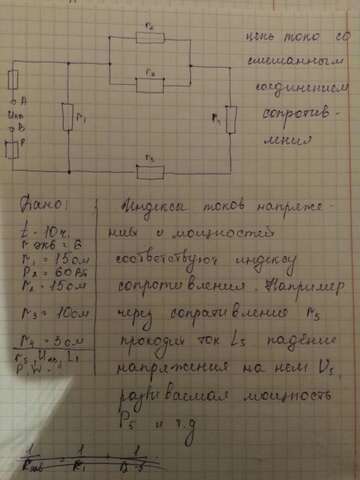 r2
цепь тока со
r3
смешанным
соединением
сопротив-
ления
A
Uав
B
P
r1
r4
r5
Дано:
t - 10ч.
r экв = 6
r1 = 15ом
P2 = 60Вт
r2 = 15ом
r3 = 10ом
r4 = 3ом
r5, Uав, I1
P, W -
Индексы токов напряже-
ния и мощностей
соответствуют индексу
сопротивления. Например
через сопративления r5
проходит ток I5 падение
напряжения на нем U5
развиваемая мощность
P5 и т.д